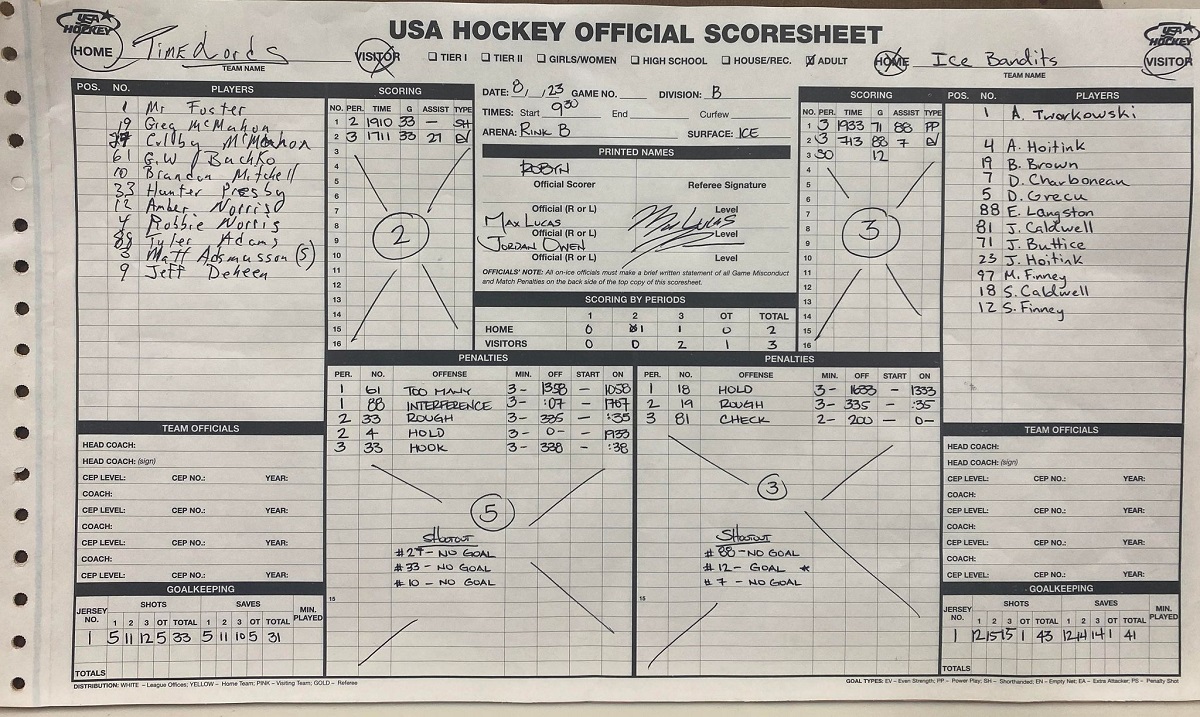 USA HOCKEY OFFICIAL SCORESHEET
USA HOCKEY
HOME
Time Lords
TEAM NAME
VISITOR
☐ TIER I ☐ TIER II ☐ GIRLS/WOMEN ☐ HIGH SCHOOL ☐ HOUSE/REC. ☑ ADULT
HOME
Ice Bandits
TEAM NAME
USA HOCKEY
VISITOR
POS. NO. PLAYERS
1 Mr Foster
19 Greg McMahon
27 Colby McMahon
61 G.W Buchko
10 Brandon Mitchell
33 Hunter Presby
12 Amber Norris
4 Robbie Norris
88 Tyler Adams
3 Matt Adsmusson (S)
9 Jeff Deheen
SCORING
NO. PER. TIME G ASSIST TYPE
1 2 1910 33 — SH
2 3 1711 33 27 EV
3
4
5
6
7
8
9
10
11
12
13
14
15
16
2
DATE: 8/ /23 GAME NO. DIVISION: B
TIMES: Start 9:30 End Curfew
ARENA: RINK B SURFACE: ICE
PRINTED NAMES
ROBYN
Official Scorer Referee Signature
Official (R or L) Level
MAX LUCAS Max Lucas
Official (R or L) Level
JORDAN OWEN
Official (R or L) Level
OFFICIALS' NOTE: All on-ice officials must make a brief written statement of all Game Misconduct
and Match Penalties on the back side of the top copy of this scoresheet.
SCORING BY PERIODS
1 2 3 OT TOTAL
HOME 0 1 1 0 2
VISITORS 0 0 2 1 3
SCORING
NO. PER. TIME G ASSIST TYPE
1 3 1933 71 88 PP
2 3 713 88 7 EV
3 SO 12
4
5
6
7
8
9
10
11
12
13
14
15
16
3
POS. NO. PLAYERS
1 A. Tworkowski
4 A. Hoitink
19 B. Brown
7 D. Charbonean
5 D. Grecu
88 E. Langston
81 J. Caldwell
71 J. Buttice
23 J. Hoitink
97 M. Finney
18 S. Caldwell
12 S. Finney
PENALTIES
PER. NO. OFFENSE MIN. OFF START ON
1 61 TOO MANY 3- 1358 — 1058
1 88 INTERFERENCE 3- :07 — 1707
2 33 ROUGH 3- 335 — :35
2 4 HOLD 3- 0- — 1933
3 33 HOOK 3- 338 — :38
5
SHOOTOUT
#27 - NO GOAL
#33 - NO GOAL
#10 - NO GOAL
15
PENALTIES
PER. NO. OFFENSE MIN. OFF START ON
1 18 HOLD 3- 1633 — 1333
2 19 ROUGH 3- 335 — :35
3 81 CHECK 2- 200 — 0-
3
SHOOTOUT
#88 - NO GOAL
#12 - GOAL *
#7 - NO GOAL
15
TEAM OFFICIALS
HEAD COACH:
HEAD COACH: (sign)
CEP LEVEL: CEP NO.: YEAR:
COACH:
CEP LEVEL: CEP NO.: YEAR:
COACH:
CEP LEVEL: CEP NO.: YEAR:
COACH:
CEP LEVEL: CEP NO.: YEAR:
GOALKEEPING
JERSEY NO. SHOTS SAVES MIN. PLAYED
1 2 3 OT TOTAL 1 2 3 OT TOTAL
1 5 11 12 5 33 5 11 10 5 31
TOTALS
TEAM OFFICIALS
HEAD COACH:
HEAD COACH: (sign)
CEP LEVEL: CEP NO.: YEAR:
COACH:
CEP LEVEL: CEP NO.: YEAR:
COACH:
CEP LEVEL: CEP NO.: YEAR:
COACH:
CEP LEVEL: CEP NO.: YEAR:
GOALKEEPING
JERSEY NO. SHOTS SAVES MIN. PLAYED
1 2 3 OT TOTAL 1 2 3 OT TOTAL
1 12 15 15 1 43 12 14 14 1 41
TOTALS
DISTRIBUTION: WHITE – League Offices; YELLOW – Home Team; PINK – Visiting Team; GOLD – Referee
GOAL TYPES: EV – Even Strength; PP – Power Play; SH – Shorthanded; EN – Empty Net; EA – Extra Attacker; PS – Penalty Shot